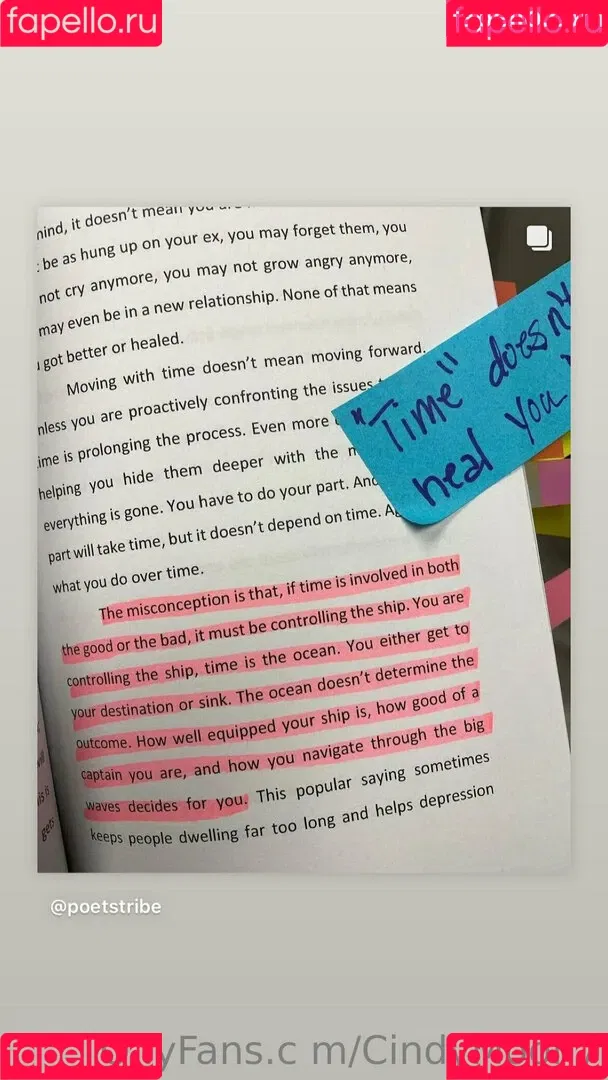 fapello.ru
fapello.ru
mind, it doesn't mean you
be as hung up on your ex, you may forget them, you
not cry anymore, you may not grow angry anymore,
may even be in a new relationship. None of that means
got better or healed.
Moving with time doesn't mean moving forward.
nless you are proactively confronting the issues
ime is prolonging the process. Even more
helping you hide them deeper with the
everything is gone. You have to do your part. And
part will take time, but it doesn't depend on time.
what you do over time.
"Time" doesn't
heal you
The misconception is that, if time is involved in both
the good or the bad, it must be controlling the ship. You are
controlling the ship, time is the ocean. You either get to
your destination or sink. The ocean doesn't determine the
outcome. How well equipped your ship is, how good of a
captain you are, and how you navigate through the big
waves decides for you. This popular saying sometimes
keeps people dwelling far too long and helps depression
gets
@poetstribe
yFans.c m/Cind
fapello.ru
fapello.ru